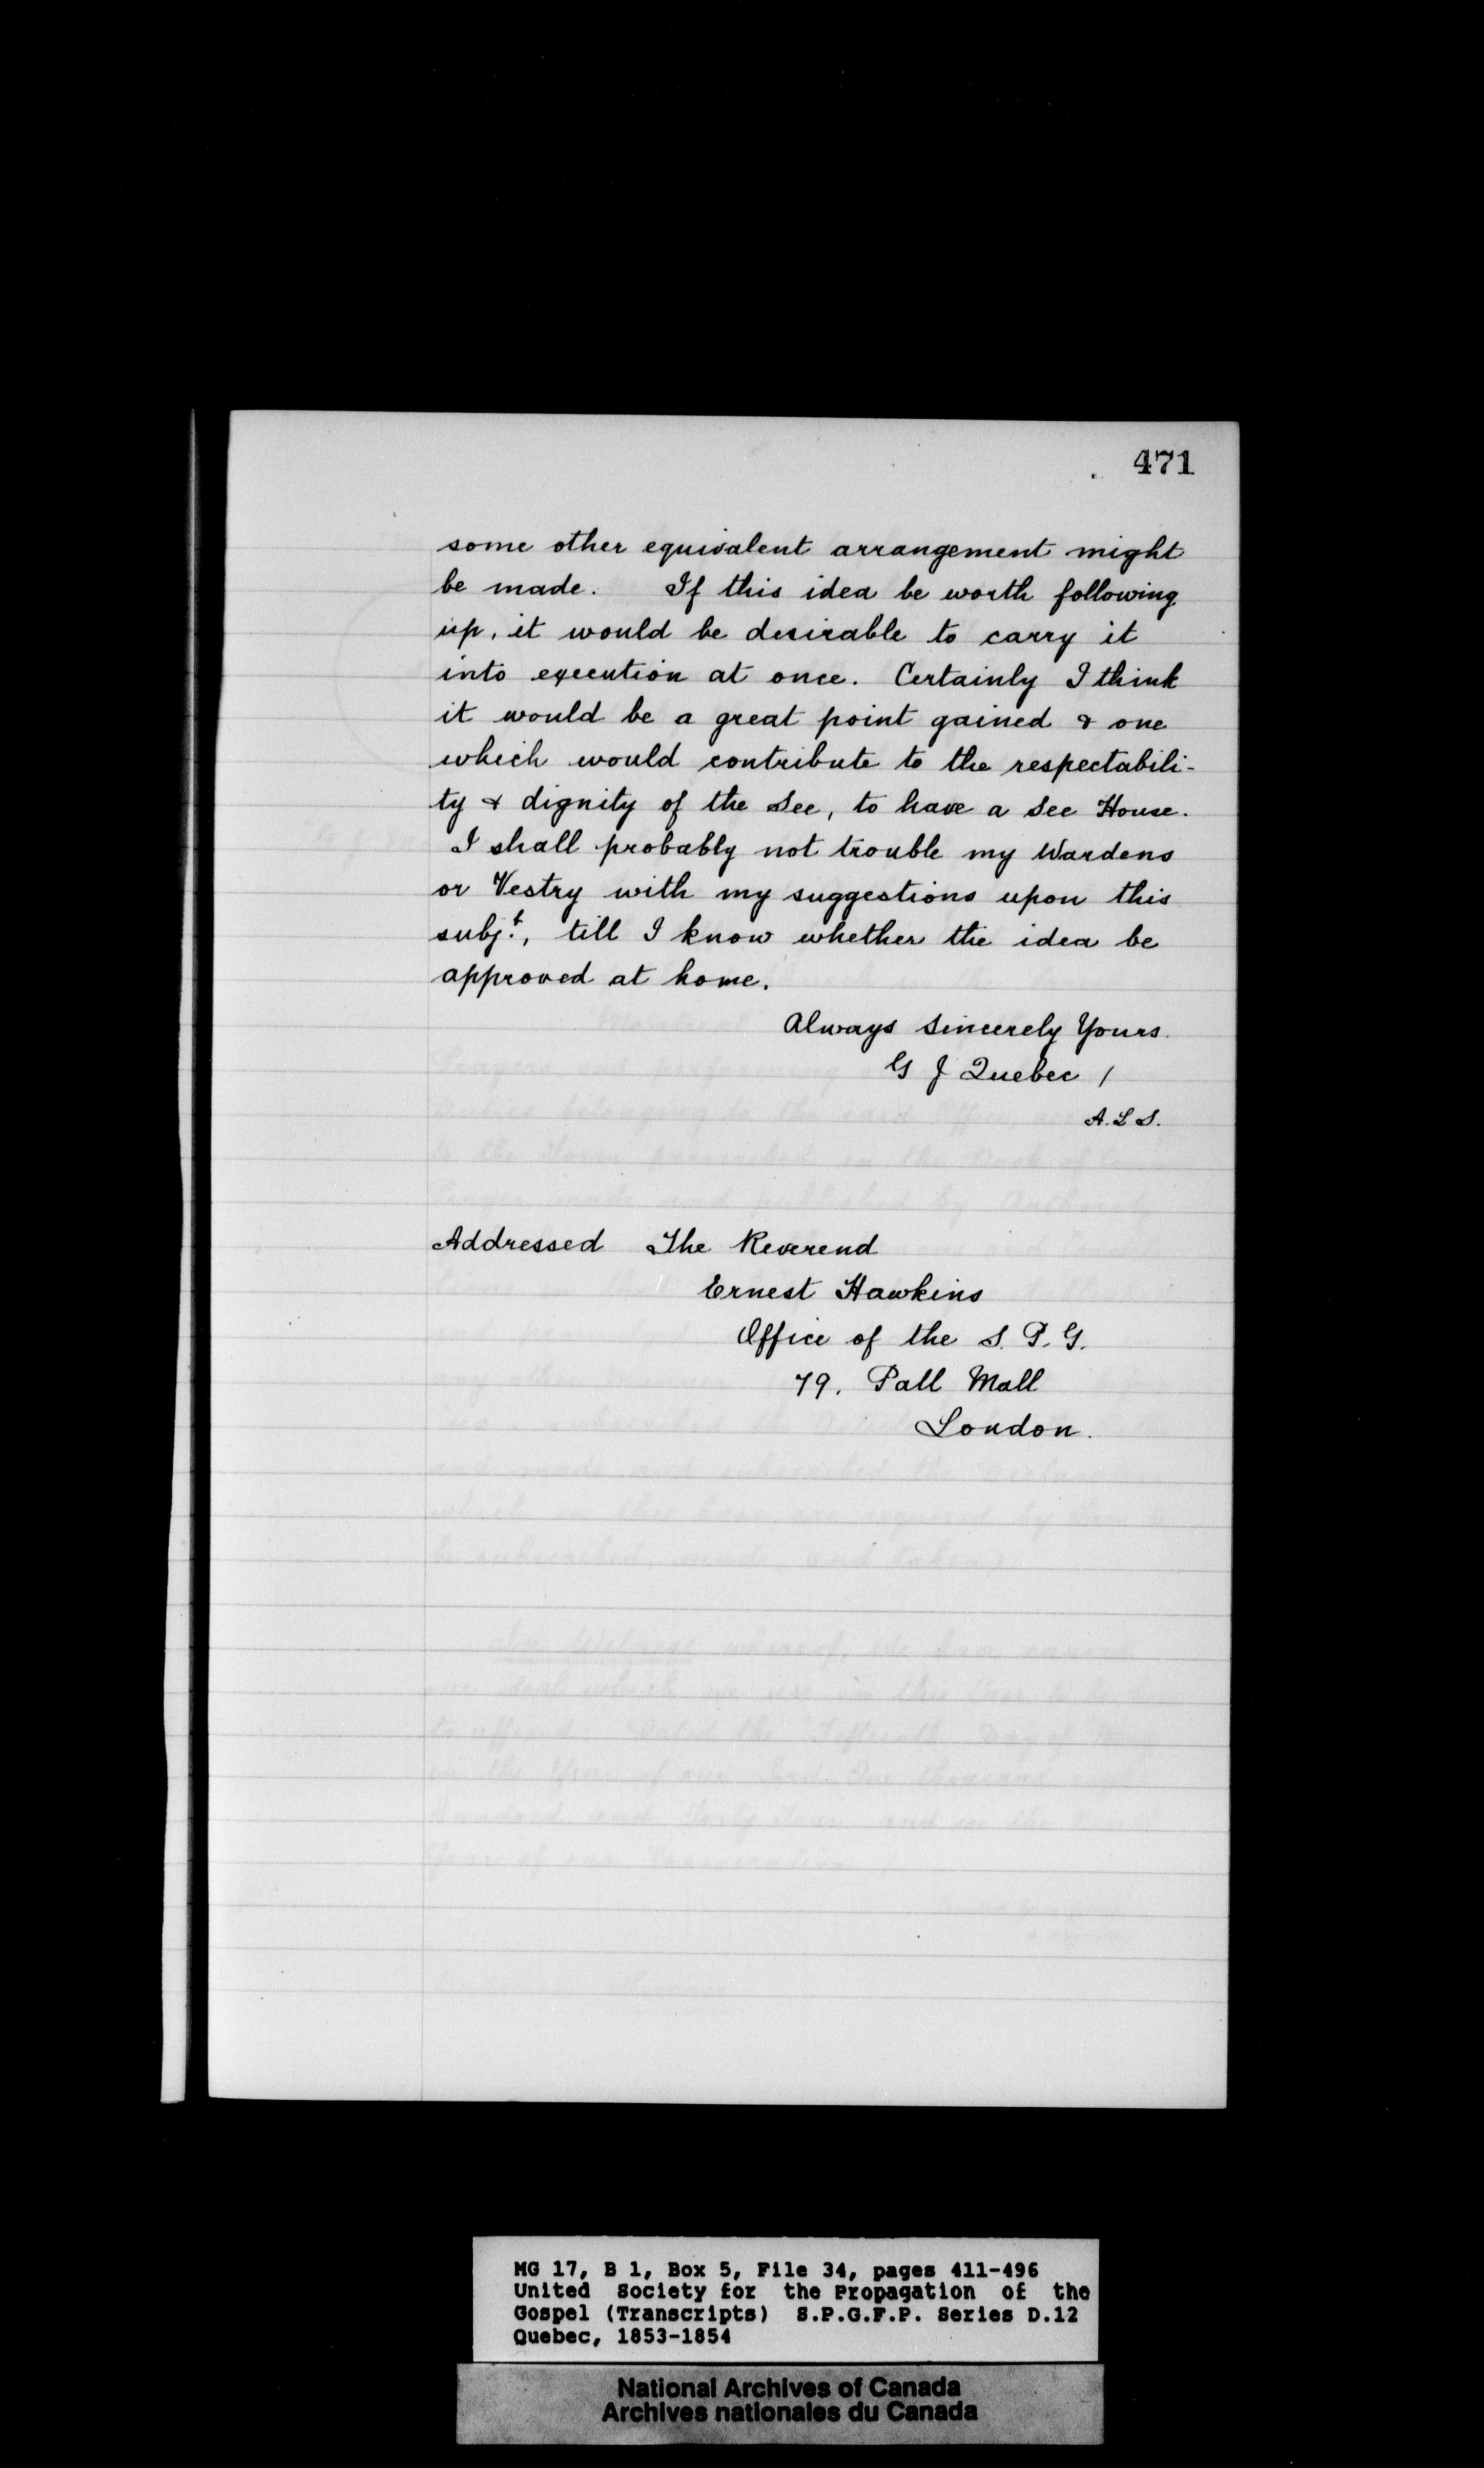 471
some other equivalent arrangement might
be made. If this idea be worth following
up, it would be desirable to carry it
into execution at once. Certainly I think
it would be a great point gained & one
which would contribute to the respectabili-
ty & dignity of the See, to have a See House.
I shall probably not trouble my Wardens
or Vestry with my suggestions upon this
subj.t, till I know whether the idea be
approved at home.
Always Sincerely Yours.
G J Quebec /
A.L.S.
Addressed The Reverend
Ernest Hawkins
Office of the S. P. G.
79, Pall Mall
London.
MG 17, B 1, Box 5, File 34, pages 411-496
United Society for the Propagation of the
Gospel (Transcripts) S.P.G.F.P. Series D.12
Quebec, 1853-1854
National Archives of Canada
Archives nationales du Canada